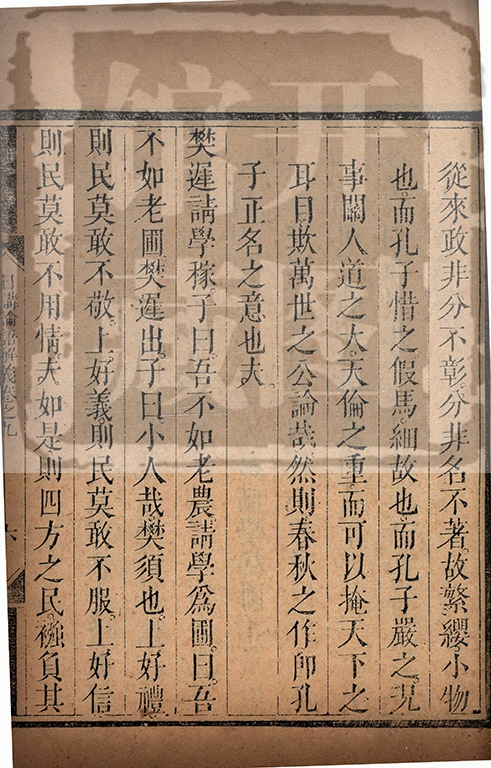 從來政非分不彰分非名不著故繁纓小物
也而孔子惜之假馬細故也而孔子嚴之況
事關人道之大天倫之重而可以掩天下之
耳目欺萬世之公論哉然則春秋之作即孔
子正名之意也夫
樊遲請學稼子曰吾不如老農請學爲圃曰吾
不如老圃樊遲出子曰小人哉樊須也上好禮
則民莫敢不敬上好義則民莫敢不服上好信
則民莫敢不用情夫如是則四方之民襁負其
日講論語解義卷之九
六